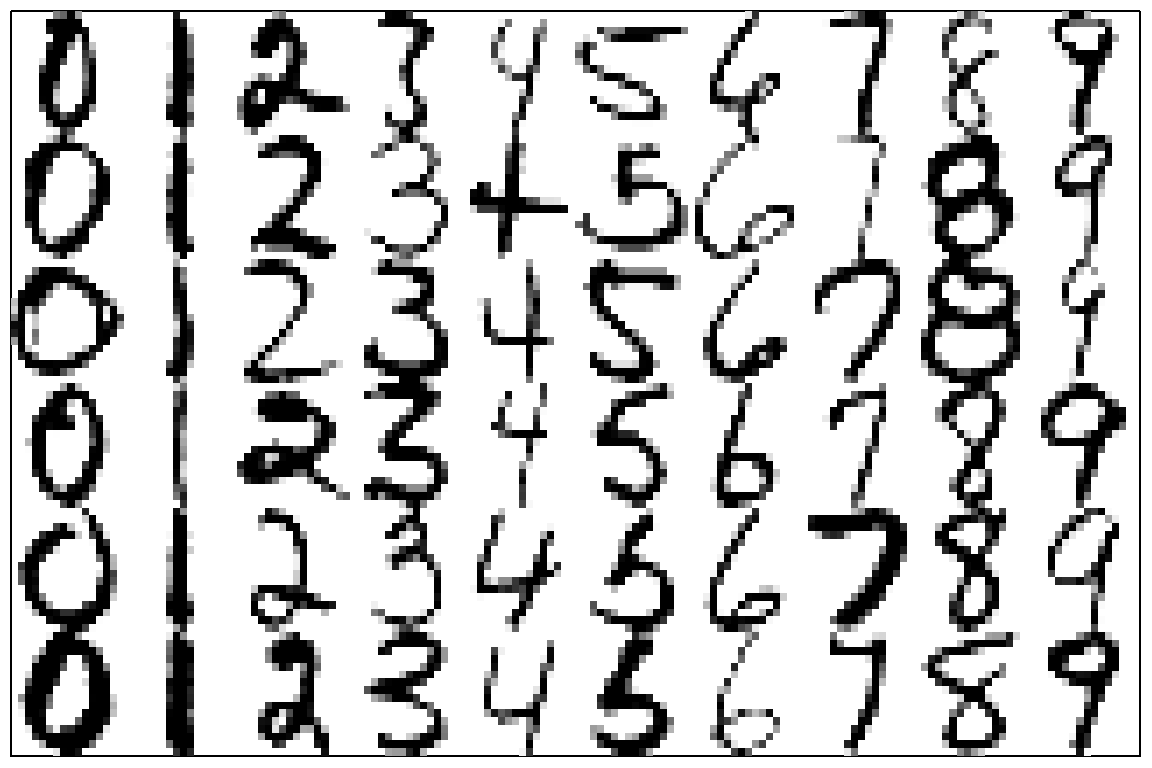 0 1 2 3 4 5 6 7 8 9
0 1 2 3 4 5 6 7 8 9
0 1 2 3 4 5 6 7 8 9
0 1 2 3 4 5 6 7 8 9
0 1 2 3 4 5 6 7 8 9
0 1 2 3 4 5 6 7 8 9